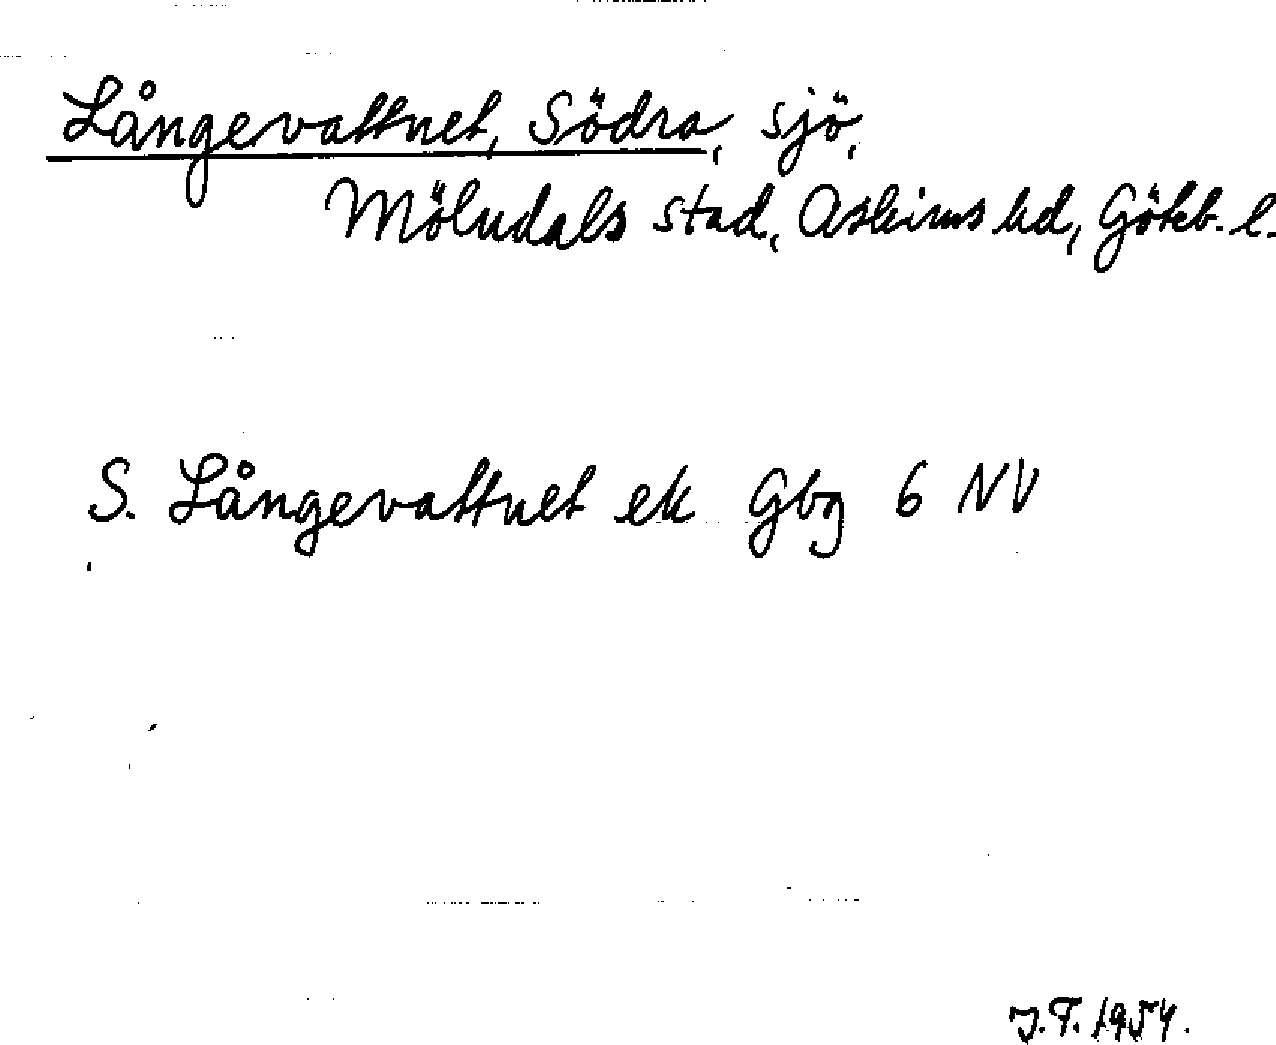 Långevattnet, Södra, sjö,
Mölndals stad, Askims hd, Göteb. l.
S. Långevattnet ek Gbg 6 NV
J.T. 1954.